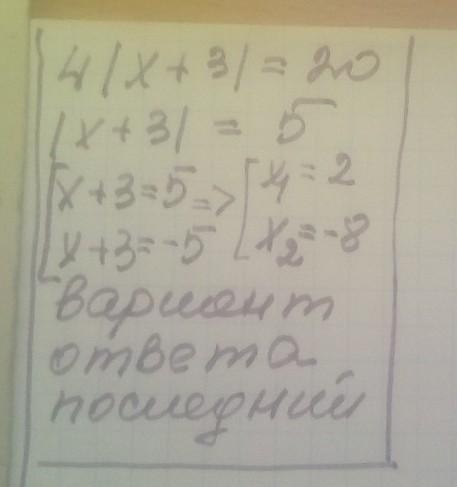 4|x+3| = 20
|x+3| = 5
[x+3=5 => [x1=2
[x+3=-5 [x2=-8
вариант
ответа
последний